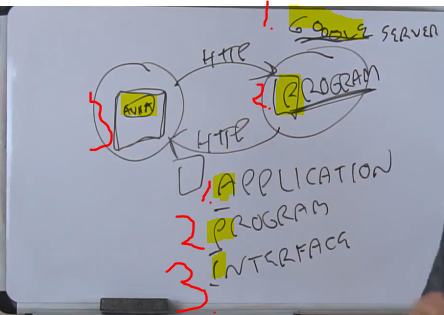 1. GOOGLE SERVER
HTTP
2. PROGRAM
3
HTTP
1. APPLICATION
2 PROGRAM
3. INTERFACE